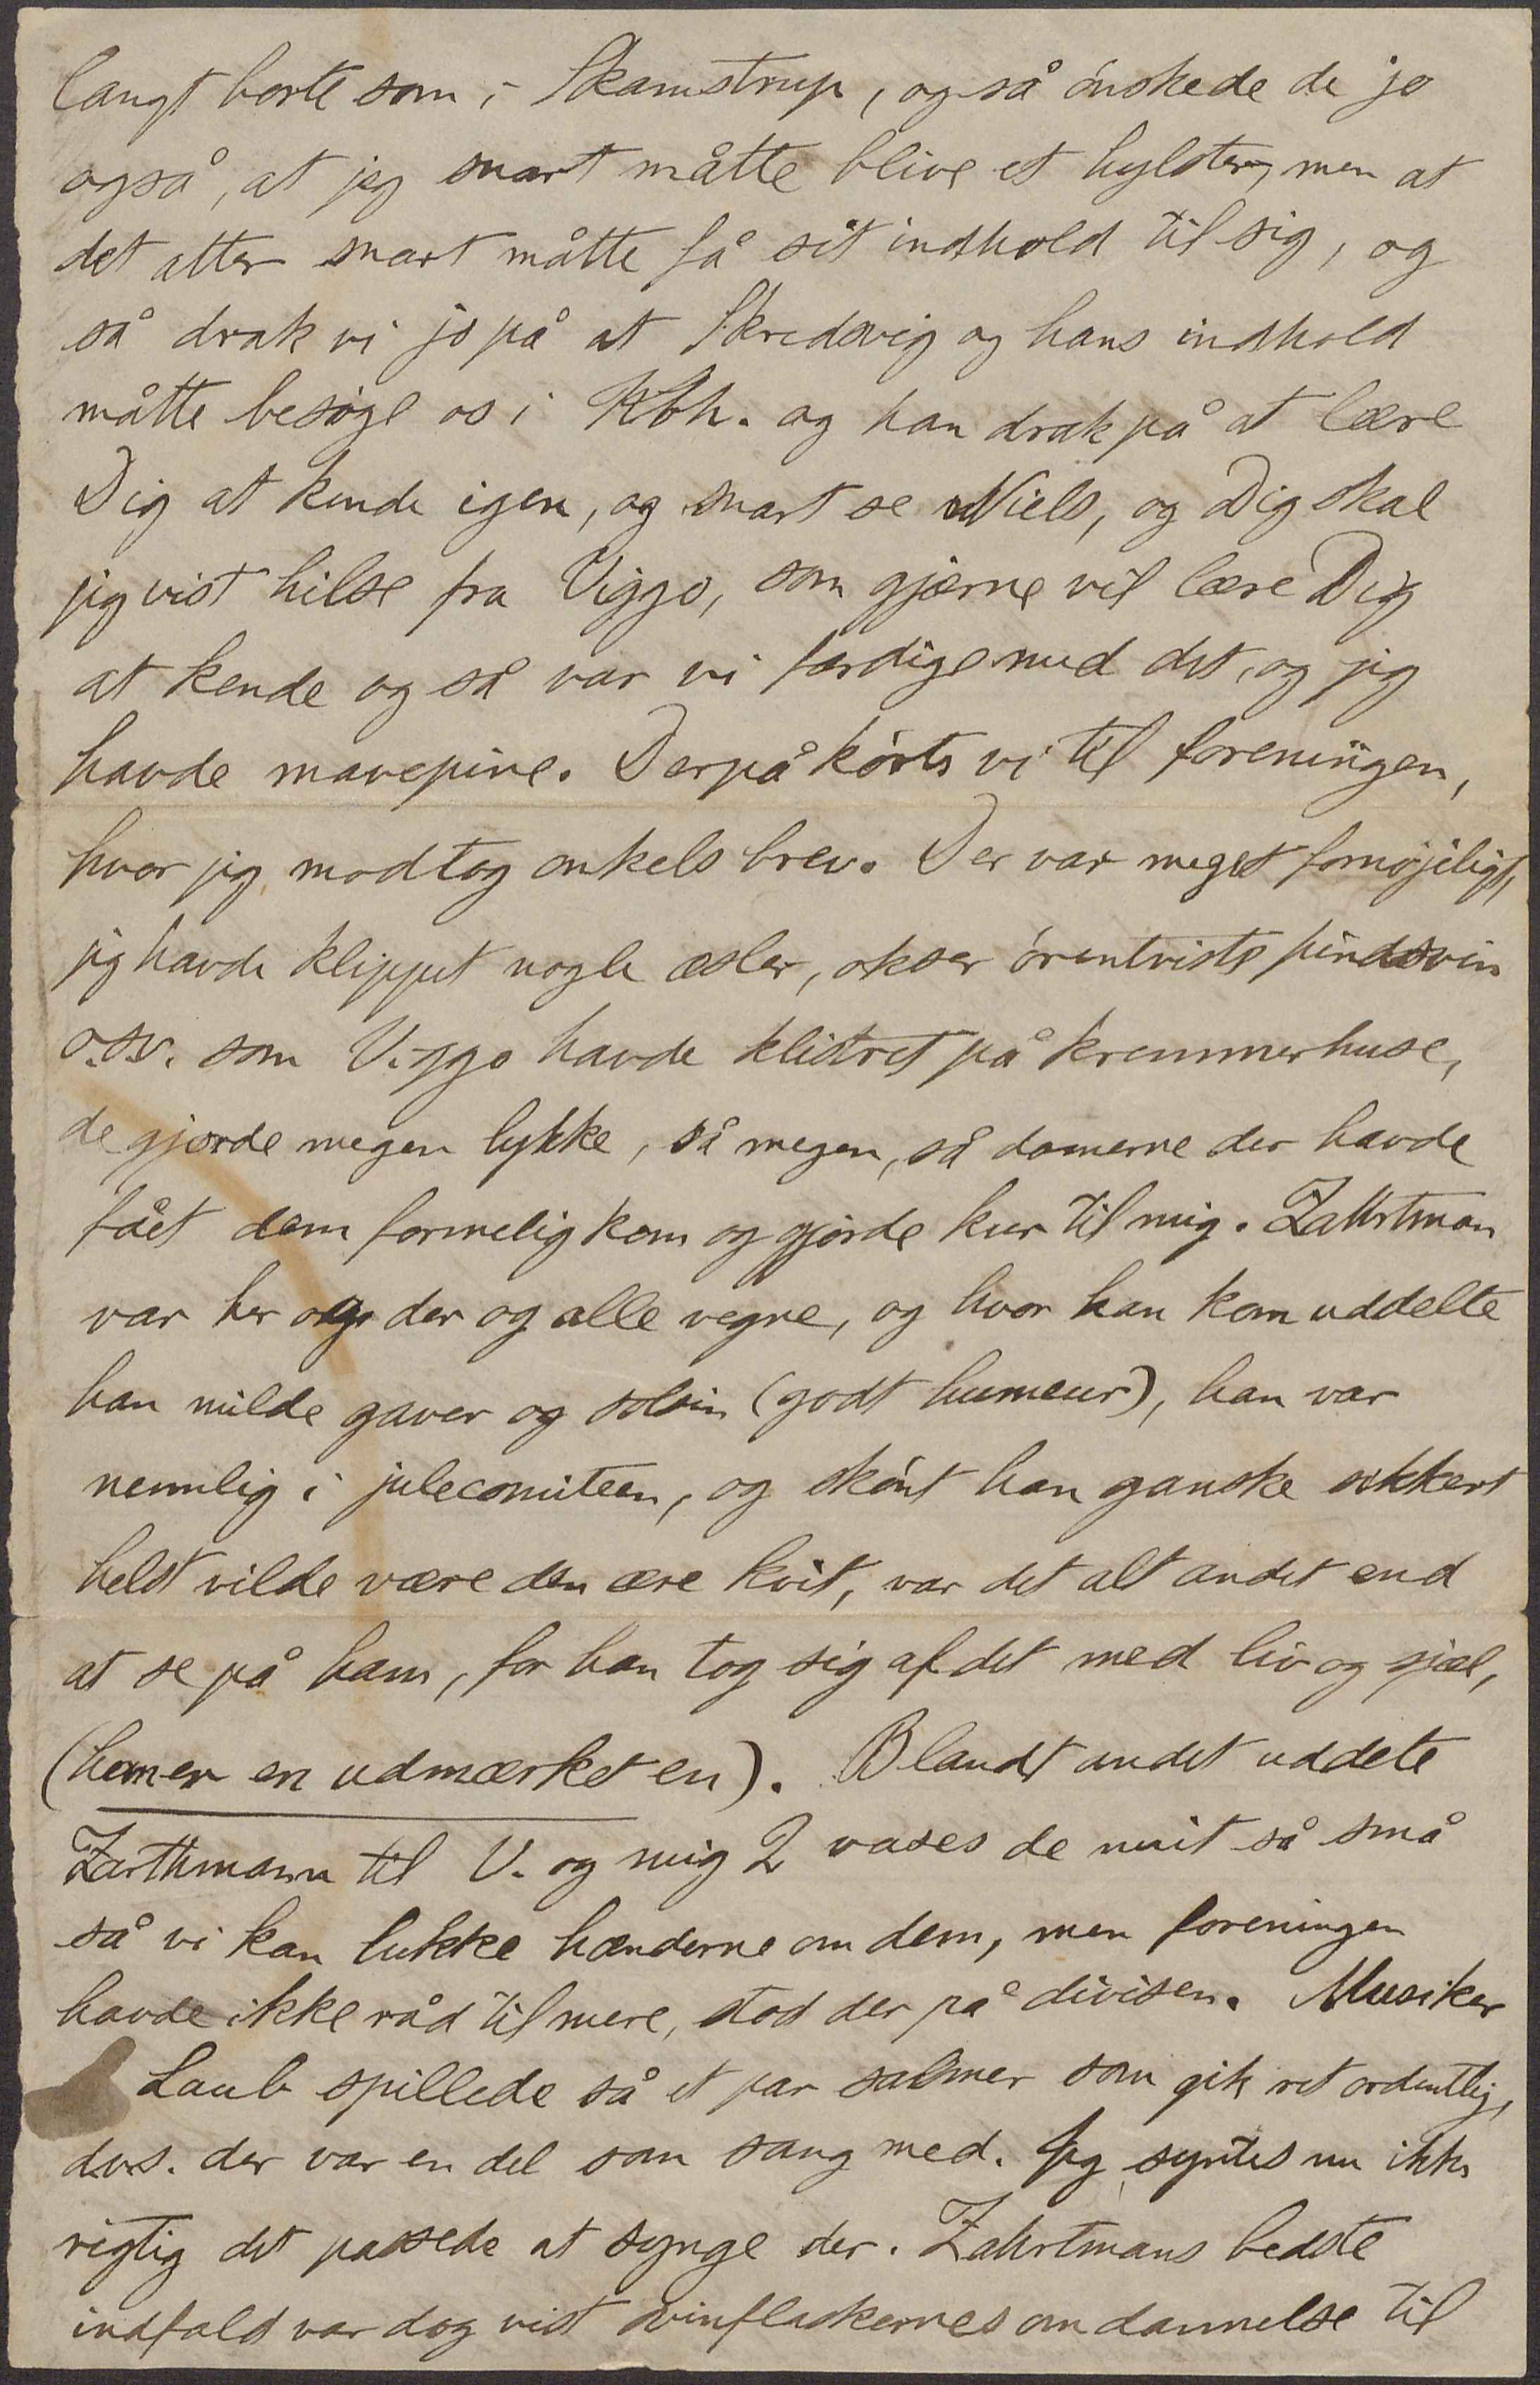 langt borte som i Skamstrup, og så ónskede de jo
også, at jeg snart måtte blive et hylster, men at
det atter snart måtte få sit indhold til sig, og
så drak vi jo på at Skredsvig og hans indhold
måtte besøge os i Kbh. og han drak på at lære
Dig at kende igen, og snart se Niels, og Dig skal
jeg vist hilse fra Viggo, som gjærne vil lære Dig
at kende og så var vi færdige med det, og jeg
havde mavepine. Derpå kórte vi til foreningen,
hvor jeg modtog onkels brev. Der var meget fornøjeligt,
jeg havde klippet nogle æsler, okser órentviste pindsvin
o.s.v. som Viggo havde klistret på kremmerhuse,
de gjorde megen lykke, så megen, så damerne der havde
fået dem formelig kom og gjorde kur til mig. Zahrtman
var her og der og alle vegne, og hvor han kom uddelte
han milde gaver og solsin (godt humeur), han var
nemlig i julecomiteen, og skónt han ganske sikkert
helst vilde være den ære kvit, var det alt andet end
at se på ham, for han tog sig af det med liv og sjæl,
(han er en udmærket en). Blandt andet uddete
Zarthmann til V. og mig 2 vases de mit så små
så vi kan lukke hænderne om dem, men foreningen
havde ikke råd til mere, stod der på divisen. Musiker
Laub spillede så et par salmer som gik ret ordentlig,
dvs. der var en del som sang med. Jeg syntes nu ikke
rigtig det passede at synge der. Zahrtmans bedste
indfald var dog vist vinflaskernes omdannelse til